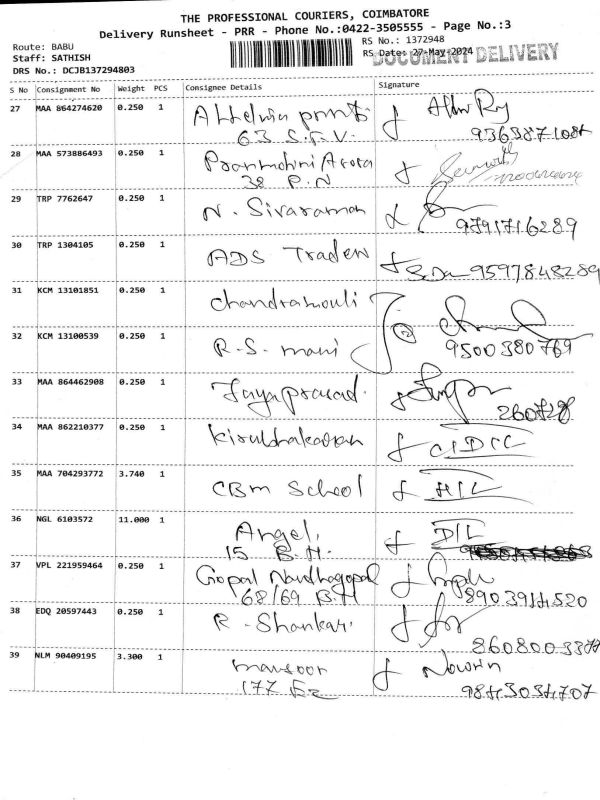 THE PROFESSIONAL COURIERS, COIMBATORE
Delivery Runsheet - PRR - Phone No.:0422-3505555 - Page No.:3
Route: BABU
RS No.: 1372948
Staff: SATHISH
RS Date: 27-May-2024
DOCUMENT DELIVERY
DRS No.: DCJB137294803
S No Consignment No Weight PCS Consignee Details Signature
27 MAA 864274620 0.250 1
63 S.F.V.
28 MAA 573886493 0.250 1 Pranmohini Arora
38 P.N
29 TRP 7762647 0.250 1 N. Sivaraman
9791716289
30 TRP 1304105 0.250 1 ADS Traders 9597848289
31 KCM 13101851 0.250 1 Chandramouli
32 KCM 13100539 0.250 1 R.S. mani
9500380769
33 MAA 864462908 0.250 1 Jayaprasad.
260728
34 MAA 862210377 0.250 1 Kirubhakaran
35 MAA 704293772 3.740 1 CBM School
36 NGL 6103572 11.000 1 Angel,
15 B.H.
37 VPL 221959464 0.250 1 Gopal Nandhagopal
68/69 B.H 8903914520
38 EDQ 20597443 0.250 1 R. Shankar
39 NLM 90409195 3.300 1 mansoor
177 9843034707